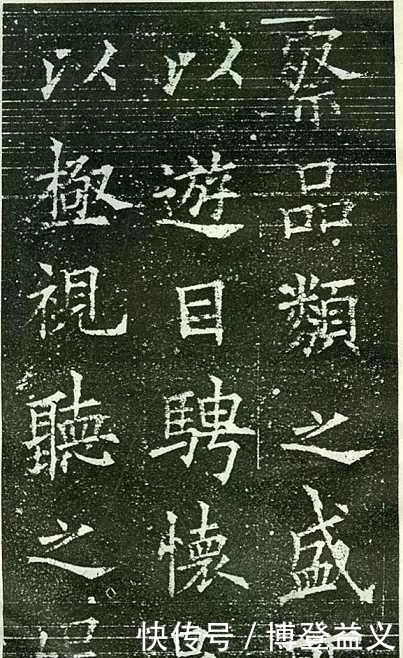 察品類之盛
以遊目騁懷
以極視聽之
快传号 / 博登益义